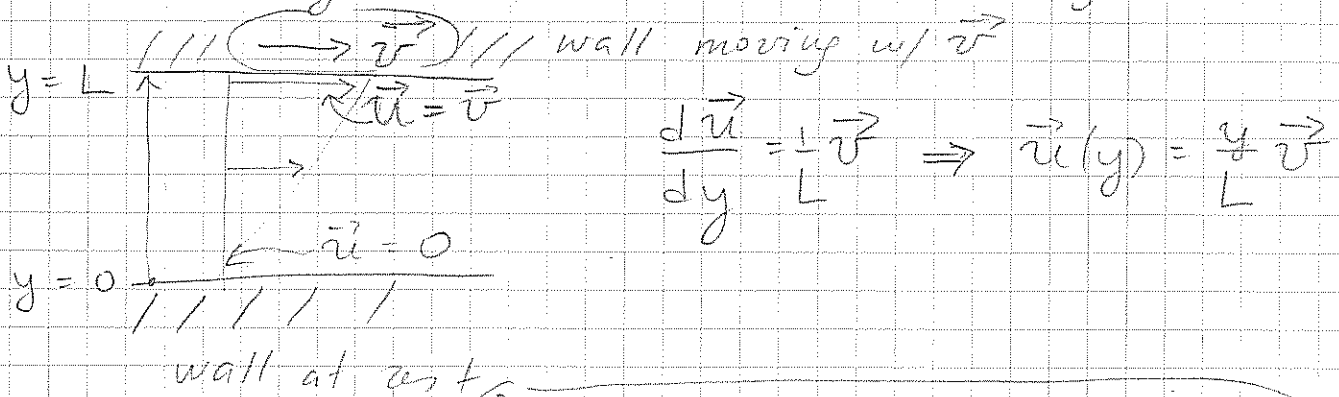 → v⃗ wall moving w/ v⃗
y = L
u⃗ = v⃗
du⃗/dy = 1/L v⃗ ⇒ u⃗(y) = y/L v⃗
u⃗ = 0
y = 0
wall at rest